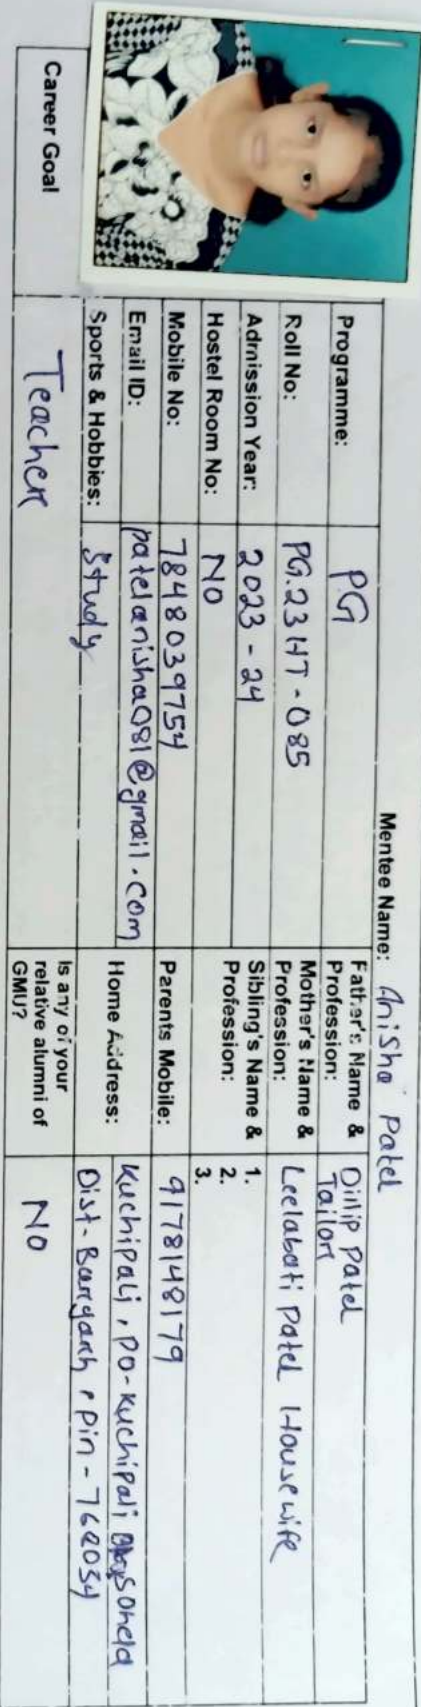 Mentee Name: Anisha Patel
Programme: PG
Father's Name & Profession: Dillip Patel Tailor
Roll No: PG.23HT-085
Mother's Name & Profession: Leelabati Patel Housewife
Admission Year: 2023-24
Sibling's Name & Profession: 1. 2. 3.
Hostel Room No: NO
Mobile No: 7848039754
Parents Mobile: 9178148179
Email ID: patelanisha081@gmail.com
Home Address: Kuchipali, PO-Kuchipali Sohela
Dist-Bargarh, Pin-768034
Sports & Hobbies: Study
Career Goal Teacher
Is any of your relative alumni of GMU? NO